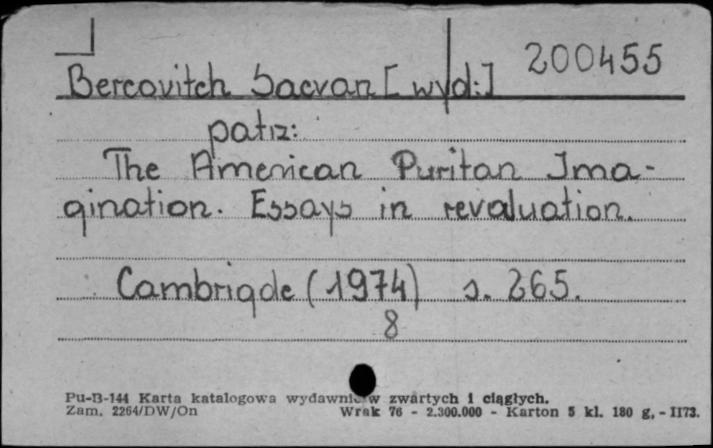 200455
Bercovitch Sacvan [wyd:]
patrz:
The American Puritan Ima-
gination. Essays in revaluation.
Cambrigde (1974) s. 265.
8
Pu-B-144 Karta katalogowa wydawnictw zwartych i ciągłych.
Zam. 2264/DW/On Wrak 76 - 2.300.000 - Karton 5 kl. 180 g. - II73.